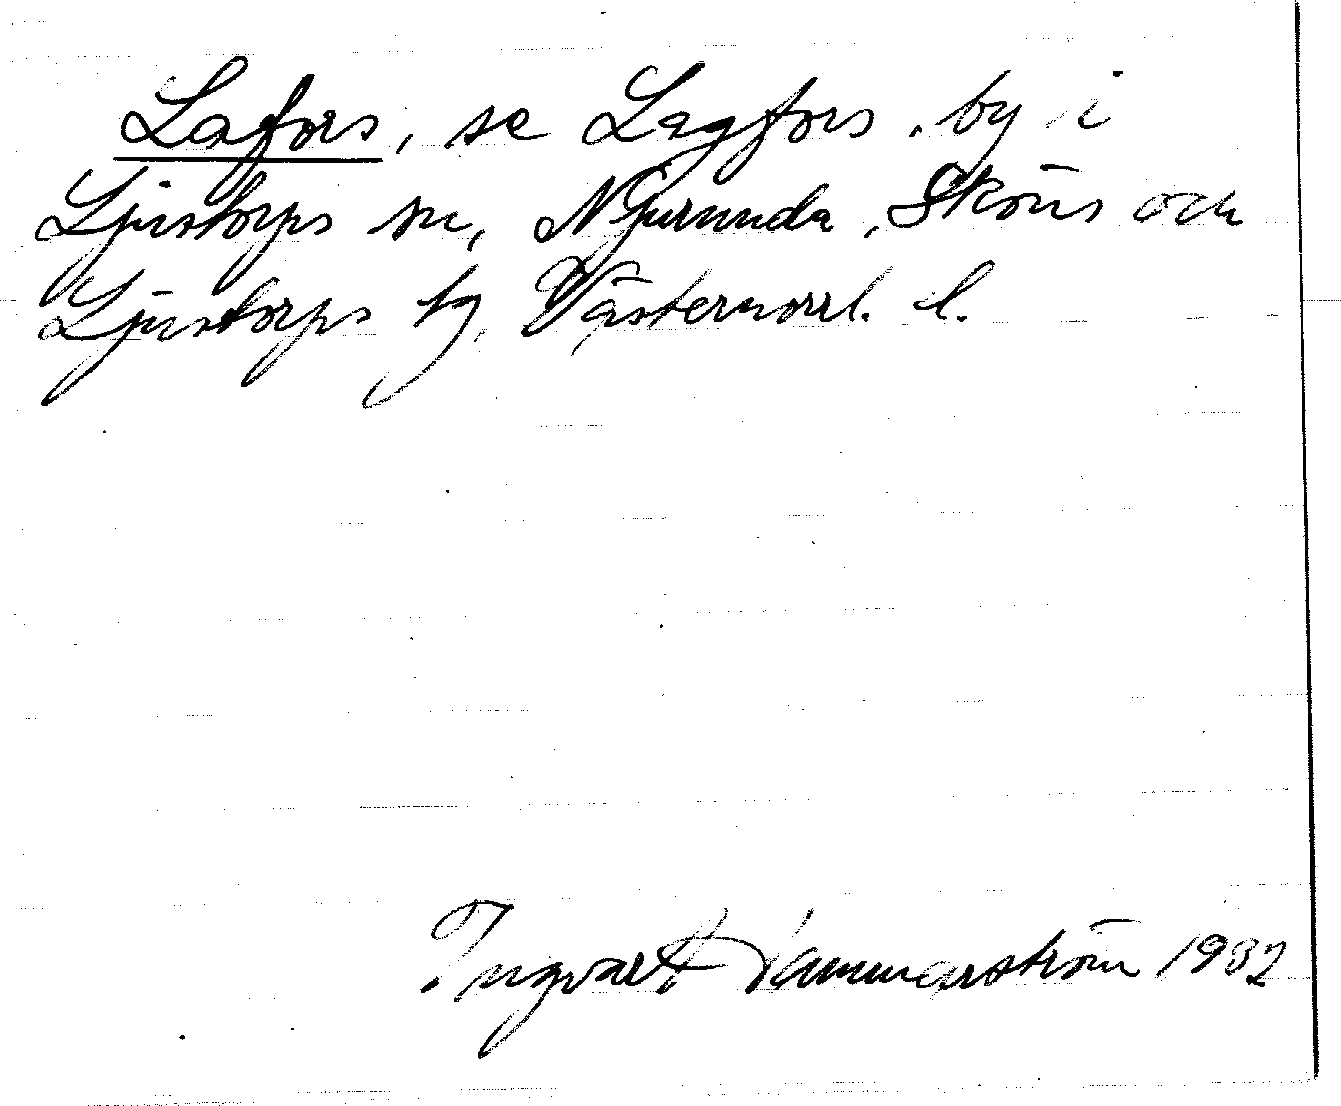 Lafors, se Lagfors, by i
Ljustorps sn, Njurunda, Sköns och
Ljustorps tg, Västernorrl. l.
Ingvar Hammarström 1932